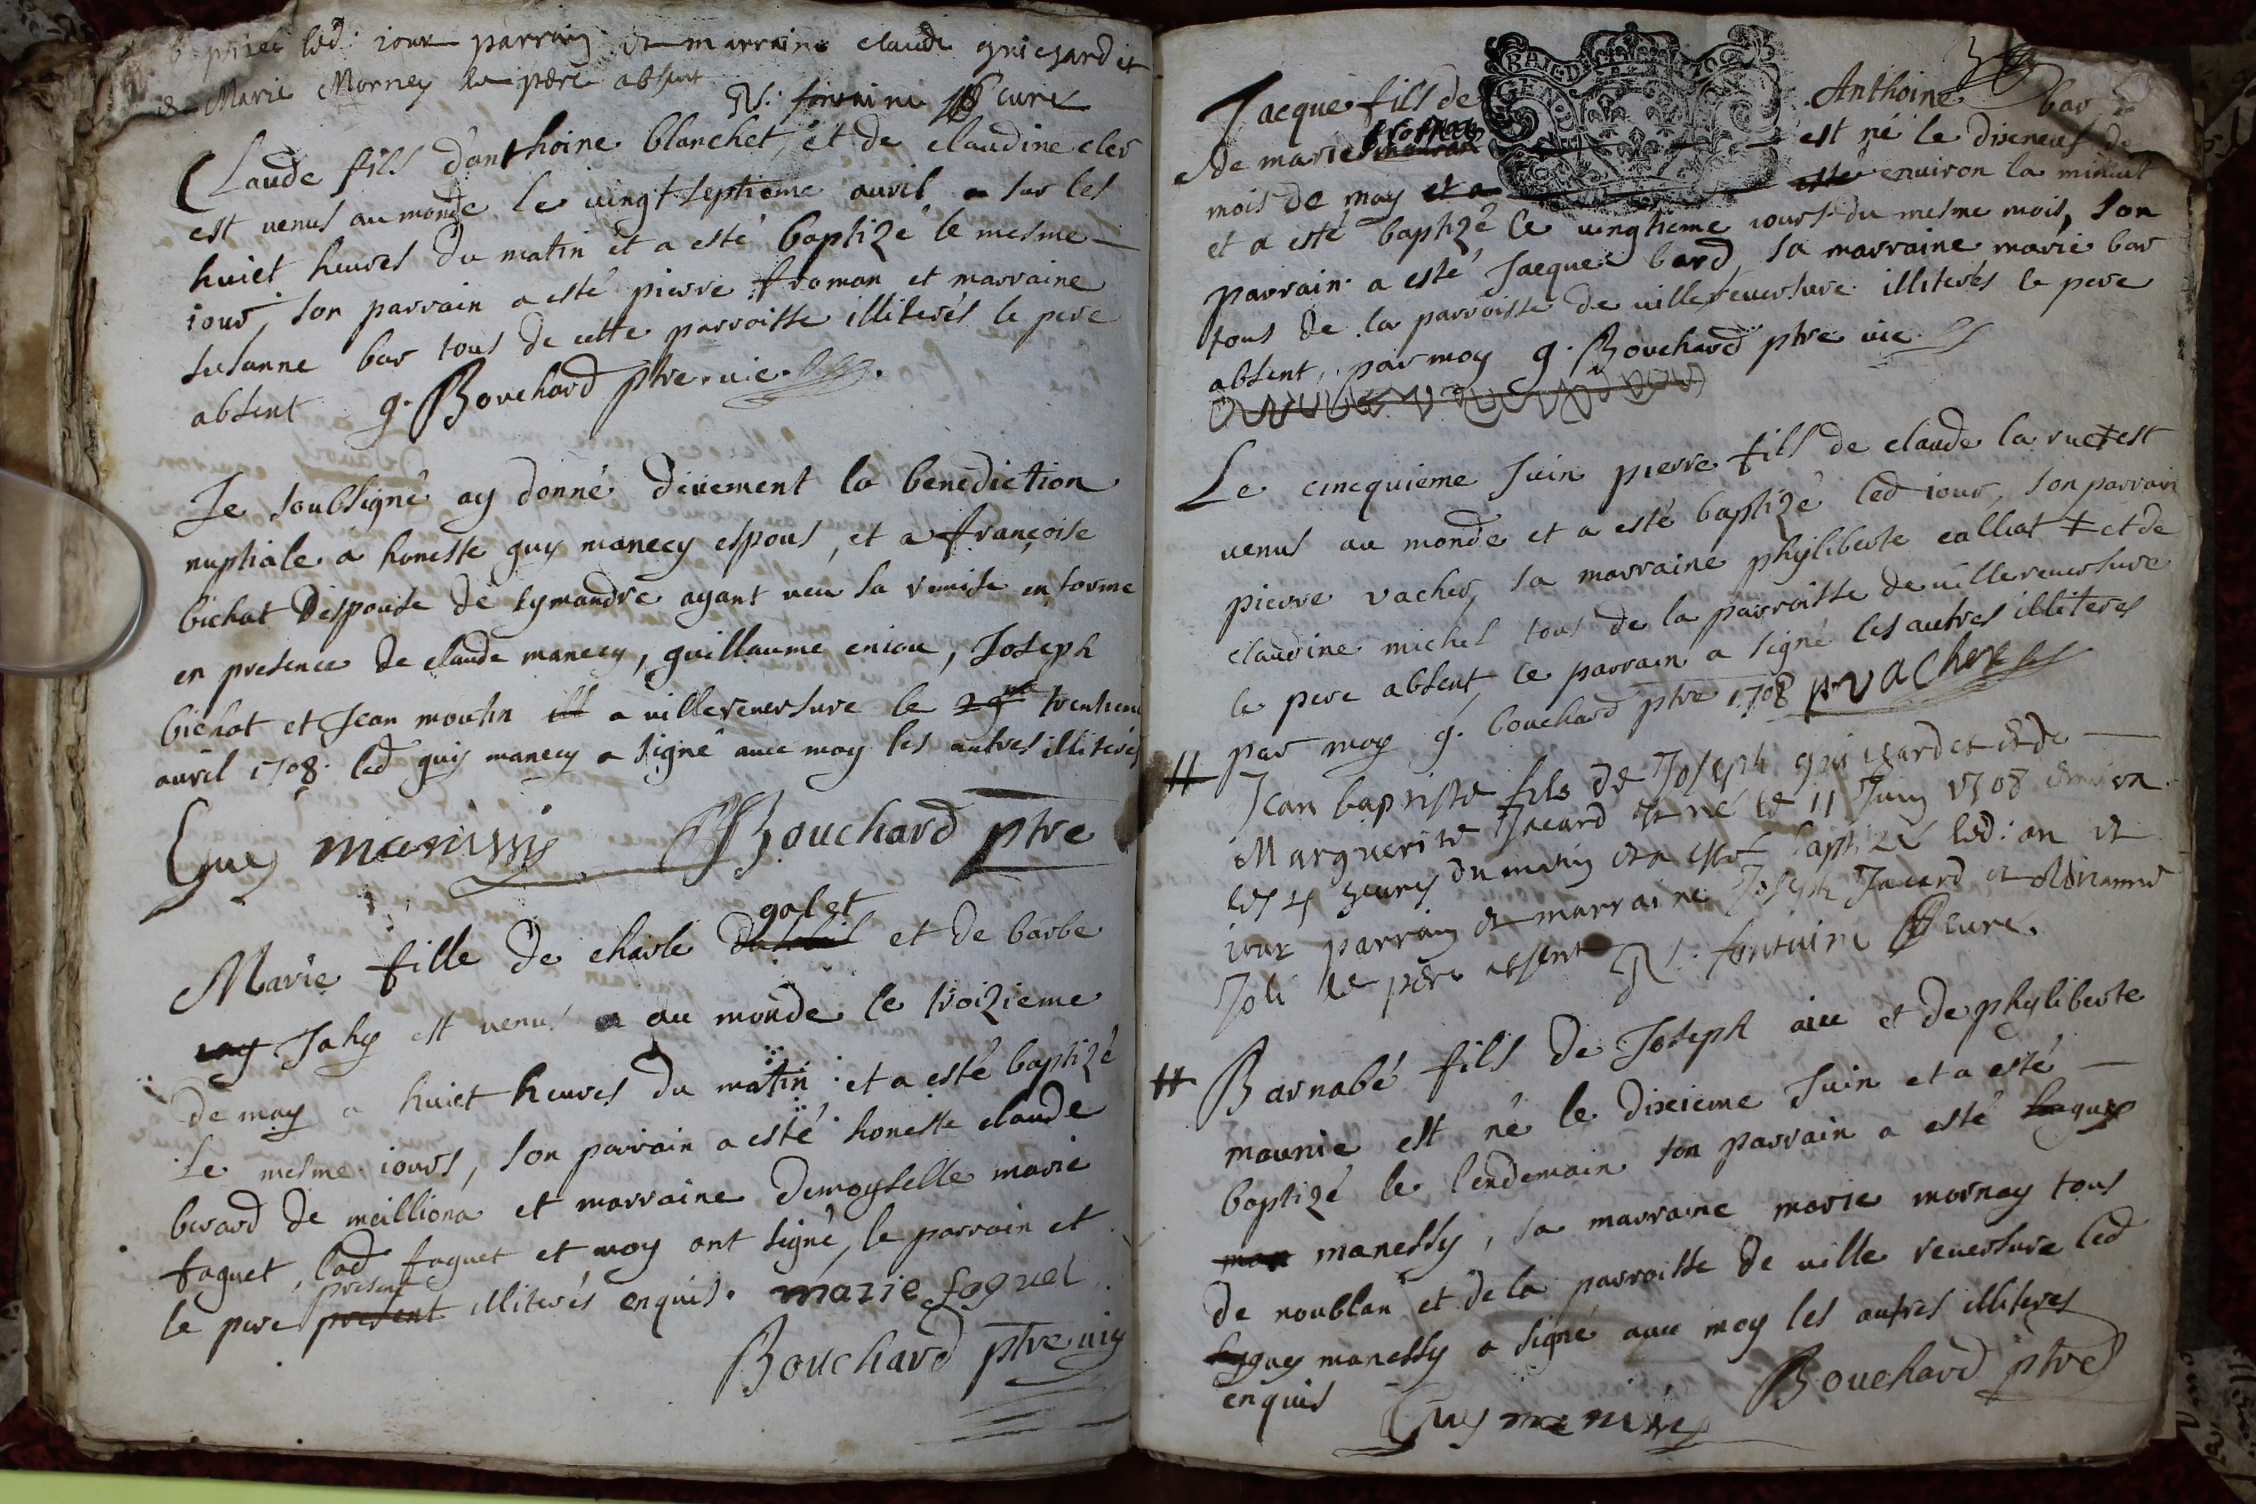 led: iour parrain et marraine claude griezard et
de Marie Morney le pere absent
fontaine curé
Claude fils d'anthoine blanchet, et de claudine cler
est venus au monde le vingt septieme auril a sur les
huict heures du matin et a esté baptizé le mesme
iour, son parrain a esté pierre froman et marraine
susanne bar tous de cette parroisse illiterés le pere
absent g. Bouchard ptre. vic.
Je soubsigné ay donné deuement la benediction
nuptiale a honeste guy manecy espous, et a françoise
bichat d'espouse de symandre ayant veu sa remise en forme
en presence de claude manecy, guillaume eniou, Joseph
bichat et Jean moulin ill a villereuersure le 29me trentieme
auril 1708. led guy manecy a signé auec moy les autres illiterés
Guy manissy Bouchard ptre
galet
Marie fille de charle et de barbe
ray Jahy est venus a au monde le troizieme
de may a huict heures du matin et a esté baptizé
le mesme iours, son parrain a esté honeste claude
berard de meilliona et marraine demoyselle marie
faguet, lad faguet et moy ont signé, le parrain et
present
le pere present illiterés enquis. marie faguet
Bouchard ptre vic
Jacque fils de Anthoine bar
de marie est né le dixneuf de
mois de may et a esté enuiron la minuit
et a esté baptizé le vingtieme iours du mesme mois, son
parrain a esté Jacque bard, sa marraine marie bar
tous de la parroisse de villereuersure illiterés le pere
absent, par moy g. Bouchard ptre vic
Le cincquieme Juin pierre fils de claude la rue + est
venus au monde et a esté baptizé led iour, son parrain
pierre vacher, sa marraine phyliberte calliat + et de
claudine michel tous de la parroisse de villereuersure
le pere absent, le parrain a signé les autres illiteres
par moy g. bouchard ptre 1708 p vacher
Jean baptiste fils de Joseph griezard et de
Marguerite Jacard est né le 11 Juin 1708 enuiron
les 4 heures du matin et a esté baptizé led: an et
iour parrain et marraine Joseph Jacard et
Joli le pere absent fontaine curé.
Barnabé fils de Joseph aue et de phyliberte
maunie est né le dixieme Juin et a esté
baptizé le lendemain son parrain a esté guy
man manessy, sa marraine marie mornay tous
de noublan et de la parroisse de ville reuersure led
guy manessy a signé auec moy les autres illiteres
enquis Guy manissy Bouchard ptre